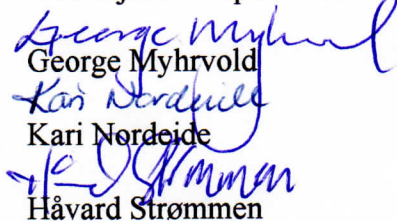 George Myhrvold
George Myhrvold
Kari Nordeide
Kari Nordeide
Håvard Strømmen